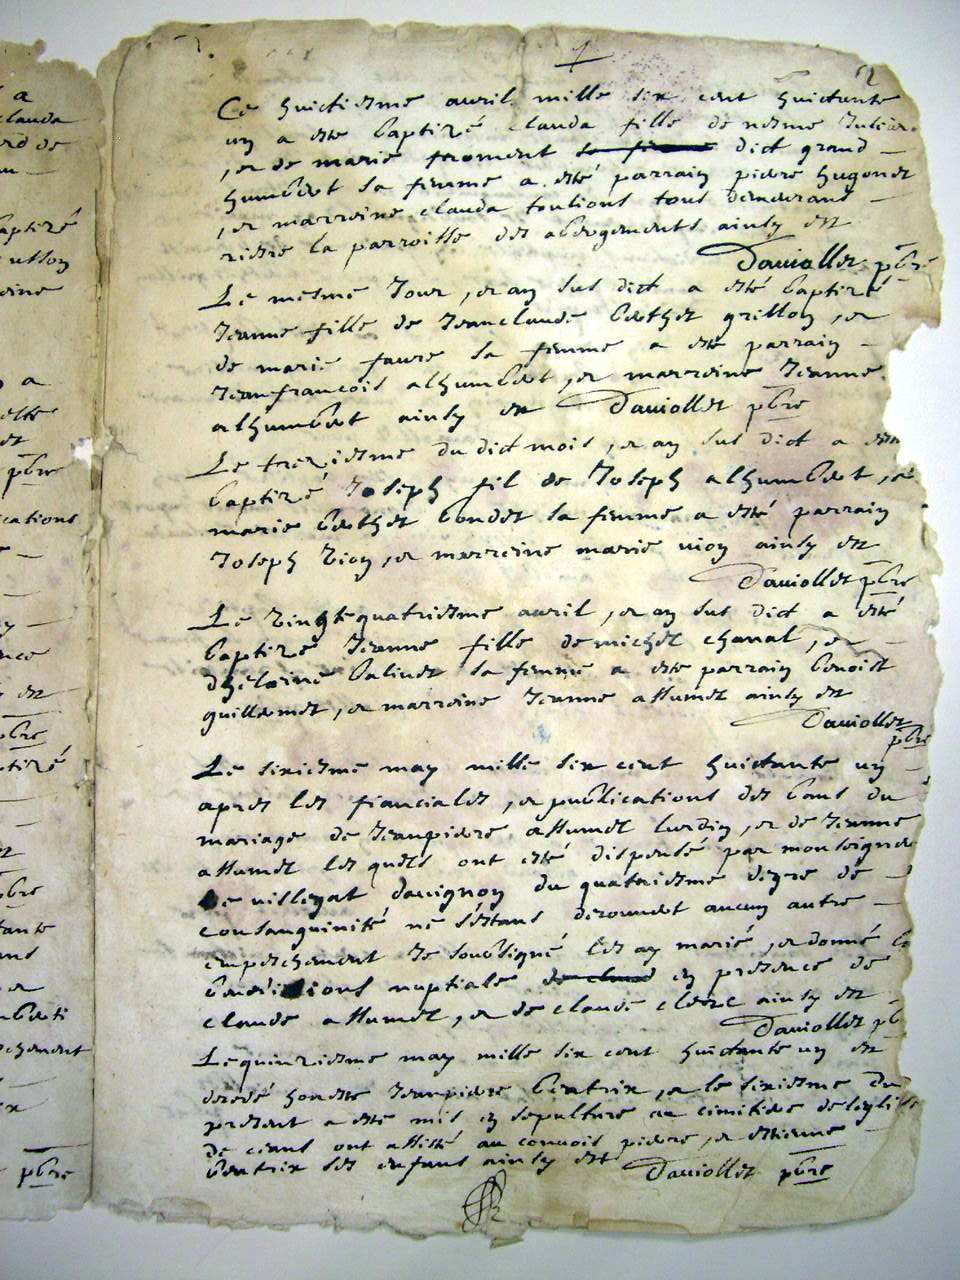 a
clauda
aptizé
a
pbre
ications
pbre
pbre
pbre
Ce huictiesme avril mille six cent huictante
un a esté baptizé clauda fille de nesme Julian
et de marie froment sa femme dict grand
humbert sa femme a esté parrain pierre hugonet
et marreine clauda toulions tous demeurans
riere la parroisse des abergements ainsy est
Daviollet pbre
Le mesme Jour et an sus dict a esté baptizé
Jeanne fille de Jeanclaude berthet grillon et
de marie favre sa femme a esté parrain
Jeanfrancois alhumbert et marreine Jeanne
alhumbert ainsy est Daviollet pbre
Le treziesme du dict mois et an sus dict a esté
baptizé Joseph fil de Joseph alhumbert et
marie berthet bondet sa femme a esté parrain
Joseph vion et marreine marie vion ainsy est
Daviollet pbre
Le vingtequatriesme avril et an sus dict a esté
baptizé Jeanne fille de michel chanal et
dheleine balivet sa femme a esté parrain benoist
guillermet et marreine Jeanne allumel ainsy est
Daviollet
pbre
Le sixiesme may mille six cent huictante un
apres les fianciales et publications des bans du
mariage de Jeanpierre allumel lurdin et de Jeanne
allumel les quels ont esté dispensé par monseigneur
de villegat davignon du quatriesme degre de
consanguinité ne sestans descouvert aucun autre
empeschement Je soubsigné les ay marié et donné la
benedictions nuptiale de claud en presence de
claude allumel et de claude clerc ainsy est
Daviollet pb
Le quinziesme may mille six cent huictante un est
decedé honeste Jeanpierre beatrix et le sixiesme du
present a esté mis en sepulture au cimitiere de leglise
de ceans ont assisté au convois pierre et estienne
beatrix ses enfans ainsy est Daviollet pbre